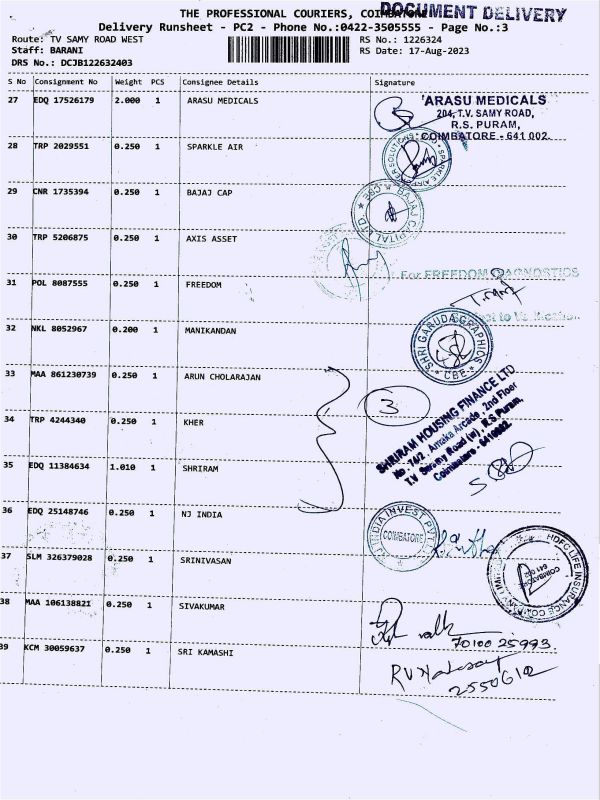 THE PROFESSIONAL COURIERS, COIMBATORE
DOCUMENT DELIVERY
Delivery Runsheet - PC2 - Phone No.:0422-3505555 - Page No.:3
Route: TV SAMY ROAD WEST
RS No.: 1226324
Staff: BARANI
RS Date: 17-Aug-2023
DRS No.: DCJB122632403
S No Consignment No Weight PCS Consignee Details Signature
27 EDQ 17526179 2.000 1 ARASU MEDICALS
'ARASU MEDICALS
204, T.V. SAMY ROAD,
R.S. PURAM,
COIMBATORE - 641 002.
28 TRP 2029551 0.250 1 SPARKLE AIR
SPARKLE AIR SOLUTIONS
29 CNR 1735394 0.250 1 BAJAJ CAP
BAJAJ CAPITAL LTD. CBE
30 TRP 5206875 0.250 1 AXIS ASSET
31 POL 8087555 0.250 1 FREEDOM
For FREEDOM DIAGNOSTICS
32 NKL 8052967 0.200 1 MANIKANDAN
SHRI GARUDA GRAPHICS
CBE
33 MAA 861230739 0.250 1 ARUN CHOLARAJAN
3
34 TRP 4244340 0.250 1 KHER
SHRIRAM HOUSING FINANCE LTD
No. 742, Arcade, 2nd Floor
T.V Samy Road (w), R.S Puram,
Coimbatore - 641002.
35 EDQ 11384634 1.010 1 SHRIRAM
36 EDQ 25148746 0.250 1 NJ INDIA
NJ INDIA INVEST PVT
COIMBATORE
37 SLM 326379028 0.250 1 SRINIVASAN
HDFC LIFE INSURANCE COMPANY LIMITED
COIMBATORE
641 002
38 MAA 106138821 0.250 1 SIVAKUMAR
70100 25993.
39 KCM 30059637 0.250 1 SRI KAMASHI
2550612